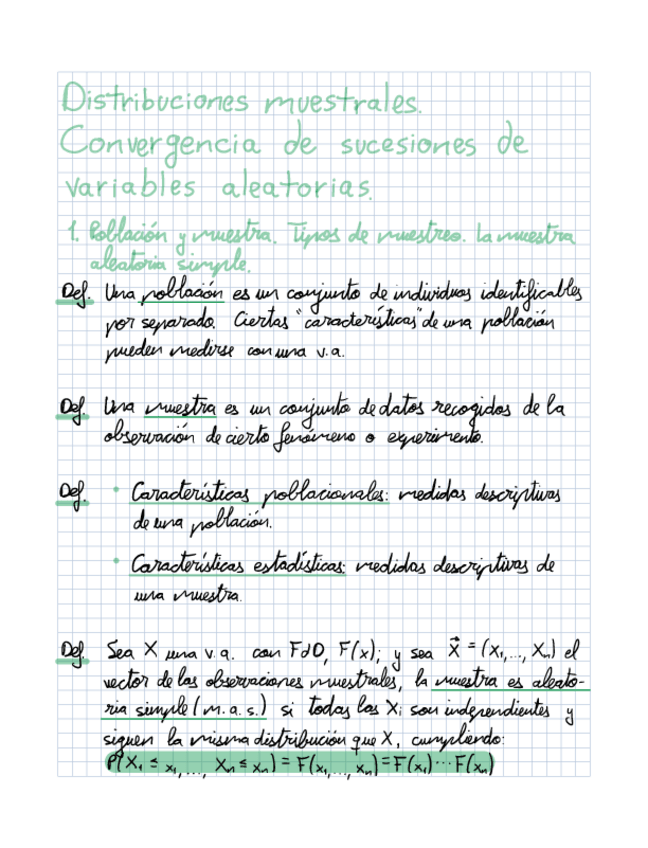 Distribuciones muestrales.
Convergencia de sucesiones de
variables aleatorias.
1. Población y muestra. Tipos de muestreo. La muestra
aleatoria simple.
Def. Una población es un conjunto de individuos identificables
por separado. Ciertas "características" de una población
pueden medirse con una v.a.
Def. Una muestra es un conjunto de datos recogidos de la
observación de cierto fenómeno o experimento.
Def. • Características poblacionales: medidas descriptivas
de una población.
• Características estadísticas: medidas descriptivas de
una muestra.
Def. Sea X una v.a. con FdD, F(x); y sea X⃗ = (X₁,..., Xₙ) el
vector de las observaciones muestrales, la muestra es aleato-
ria simple (m.a.s.) si todas las Xᵢ son independientes y
siguen la misma distribución que X, cumpliendo:
P(X₁ ≤ x₁,..., Xₙ ≤ xₙ) = F(x₁,..., xₙ) = F(x₁)···F(xₙ)